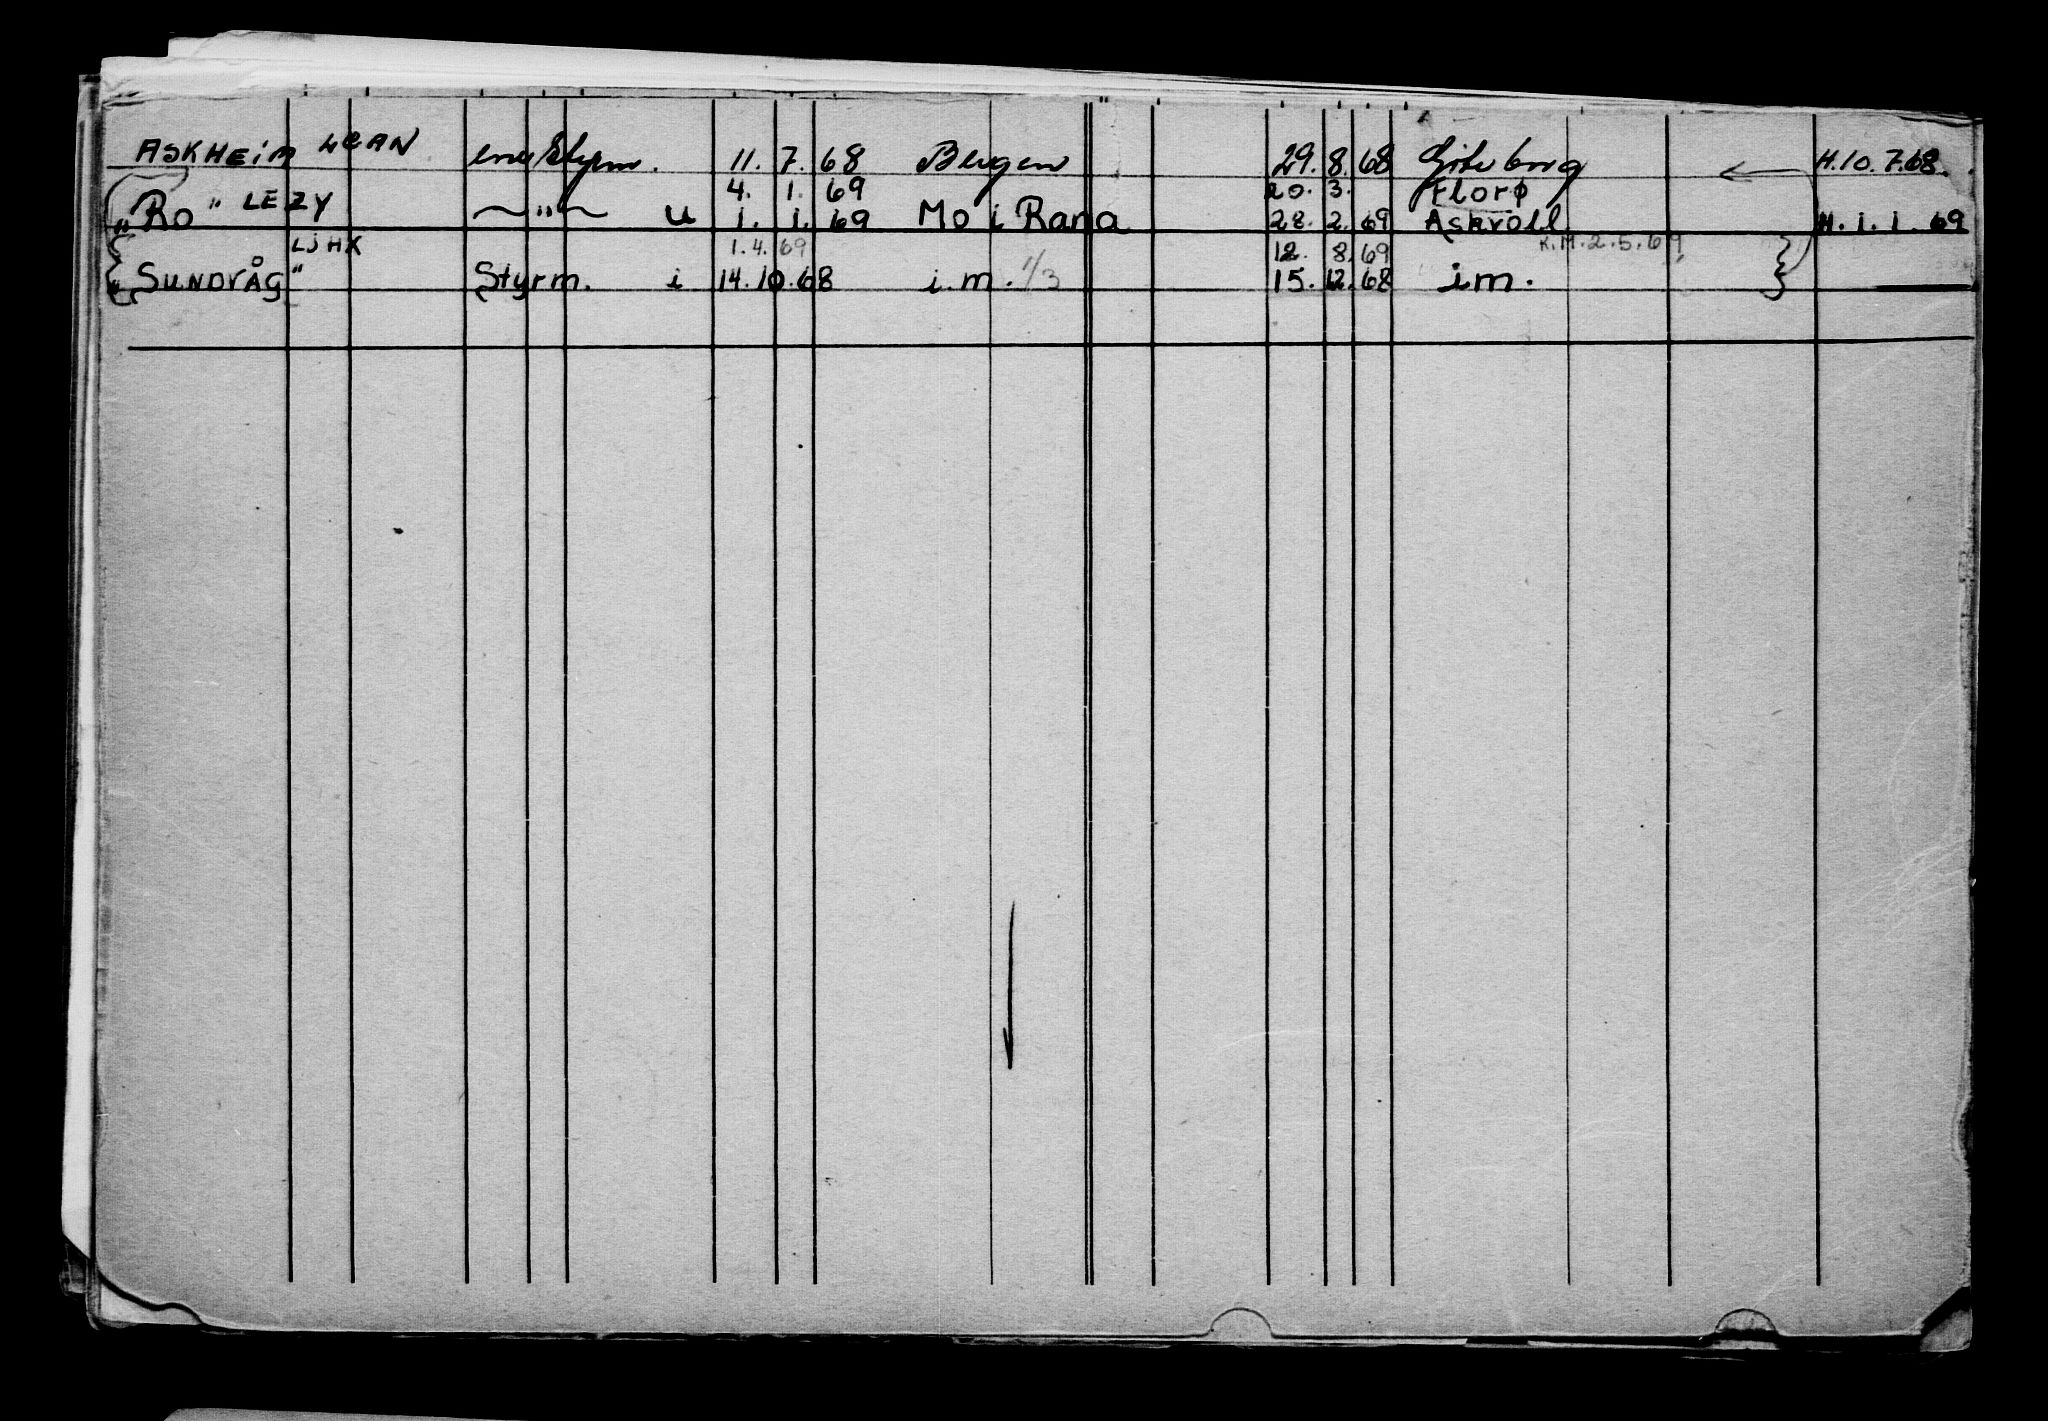 ASKHEIM LCAN ene styrm. 11. 7. 68 Bergen 29. 8. 68 Göteborg H.10.7.68.
4. 1. 69 20. 3. Florø
" Ro " LEZY —"— u 1. 1. 69 Mo i Rana 28. 2. 69 Askvoll H.1.1.69
LJHX 1.4.69 12. 8. 69 K.M.2.5.69
" SUNDVÅG " Styrm. i 14.10.68 i.m. 1/3 15. 12. 68 i m.